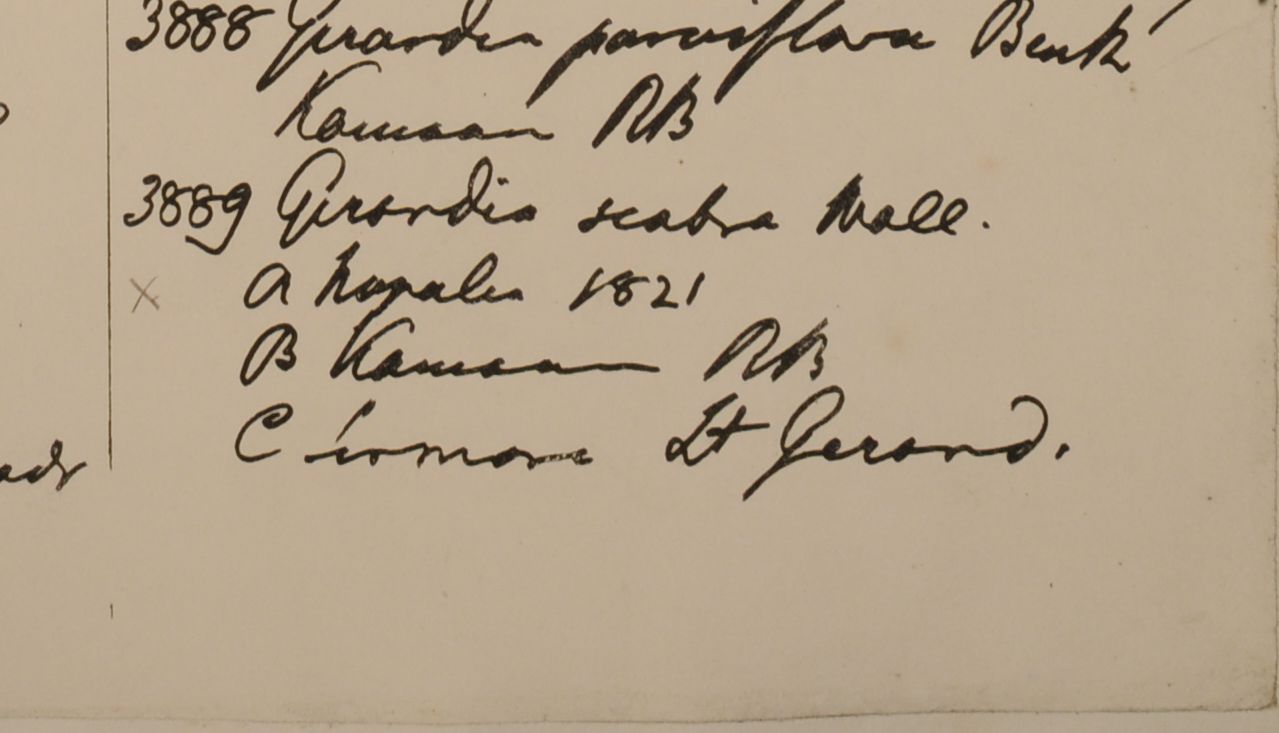 3888 Gerardia parviflora Benth
Kamaon RB
3889 Gerardia scabra Wall.
x A Napalia 1821
B Kamaon RB
C Sirmore Lt Gerard.